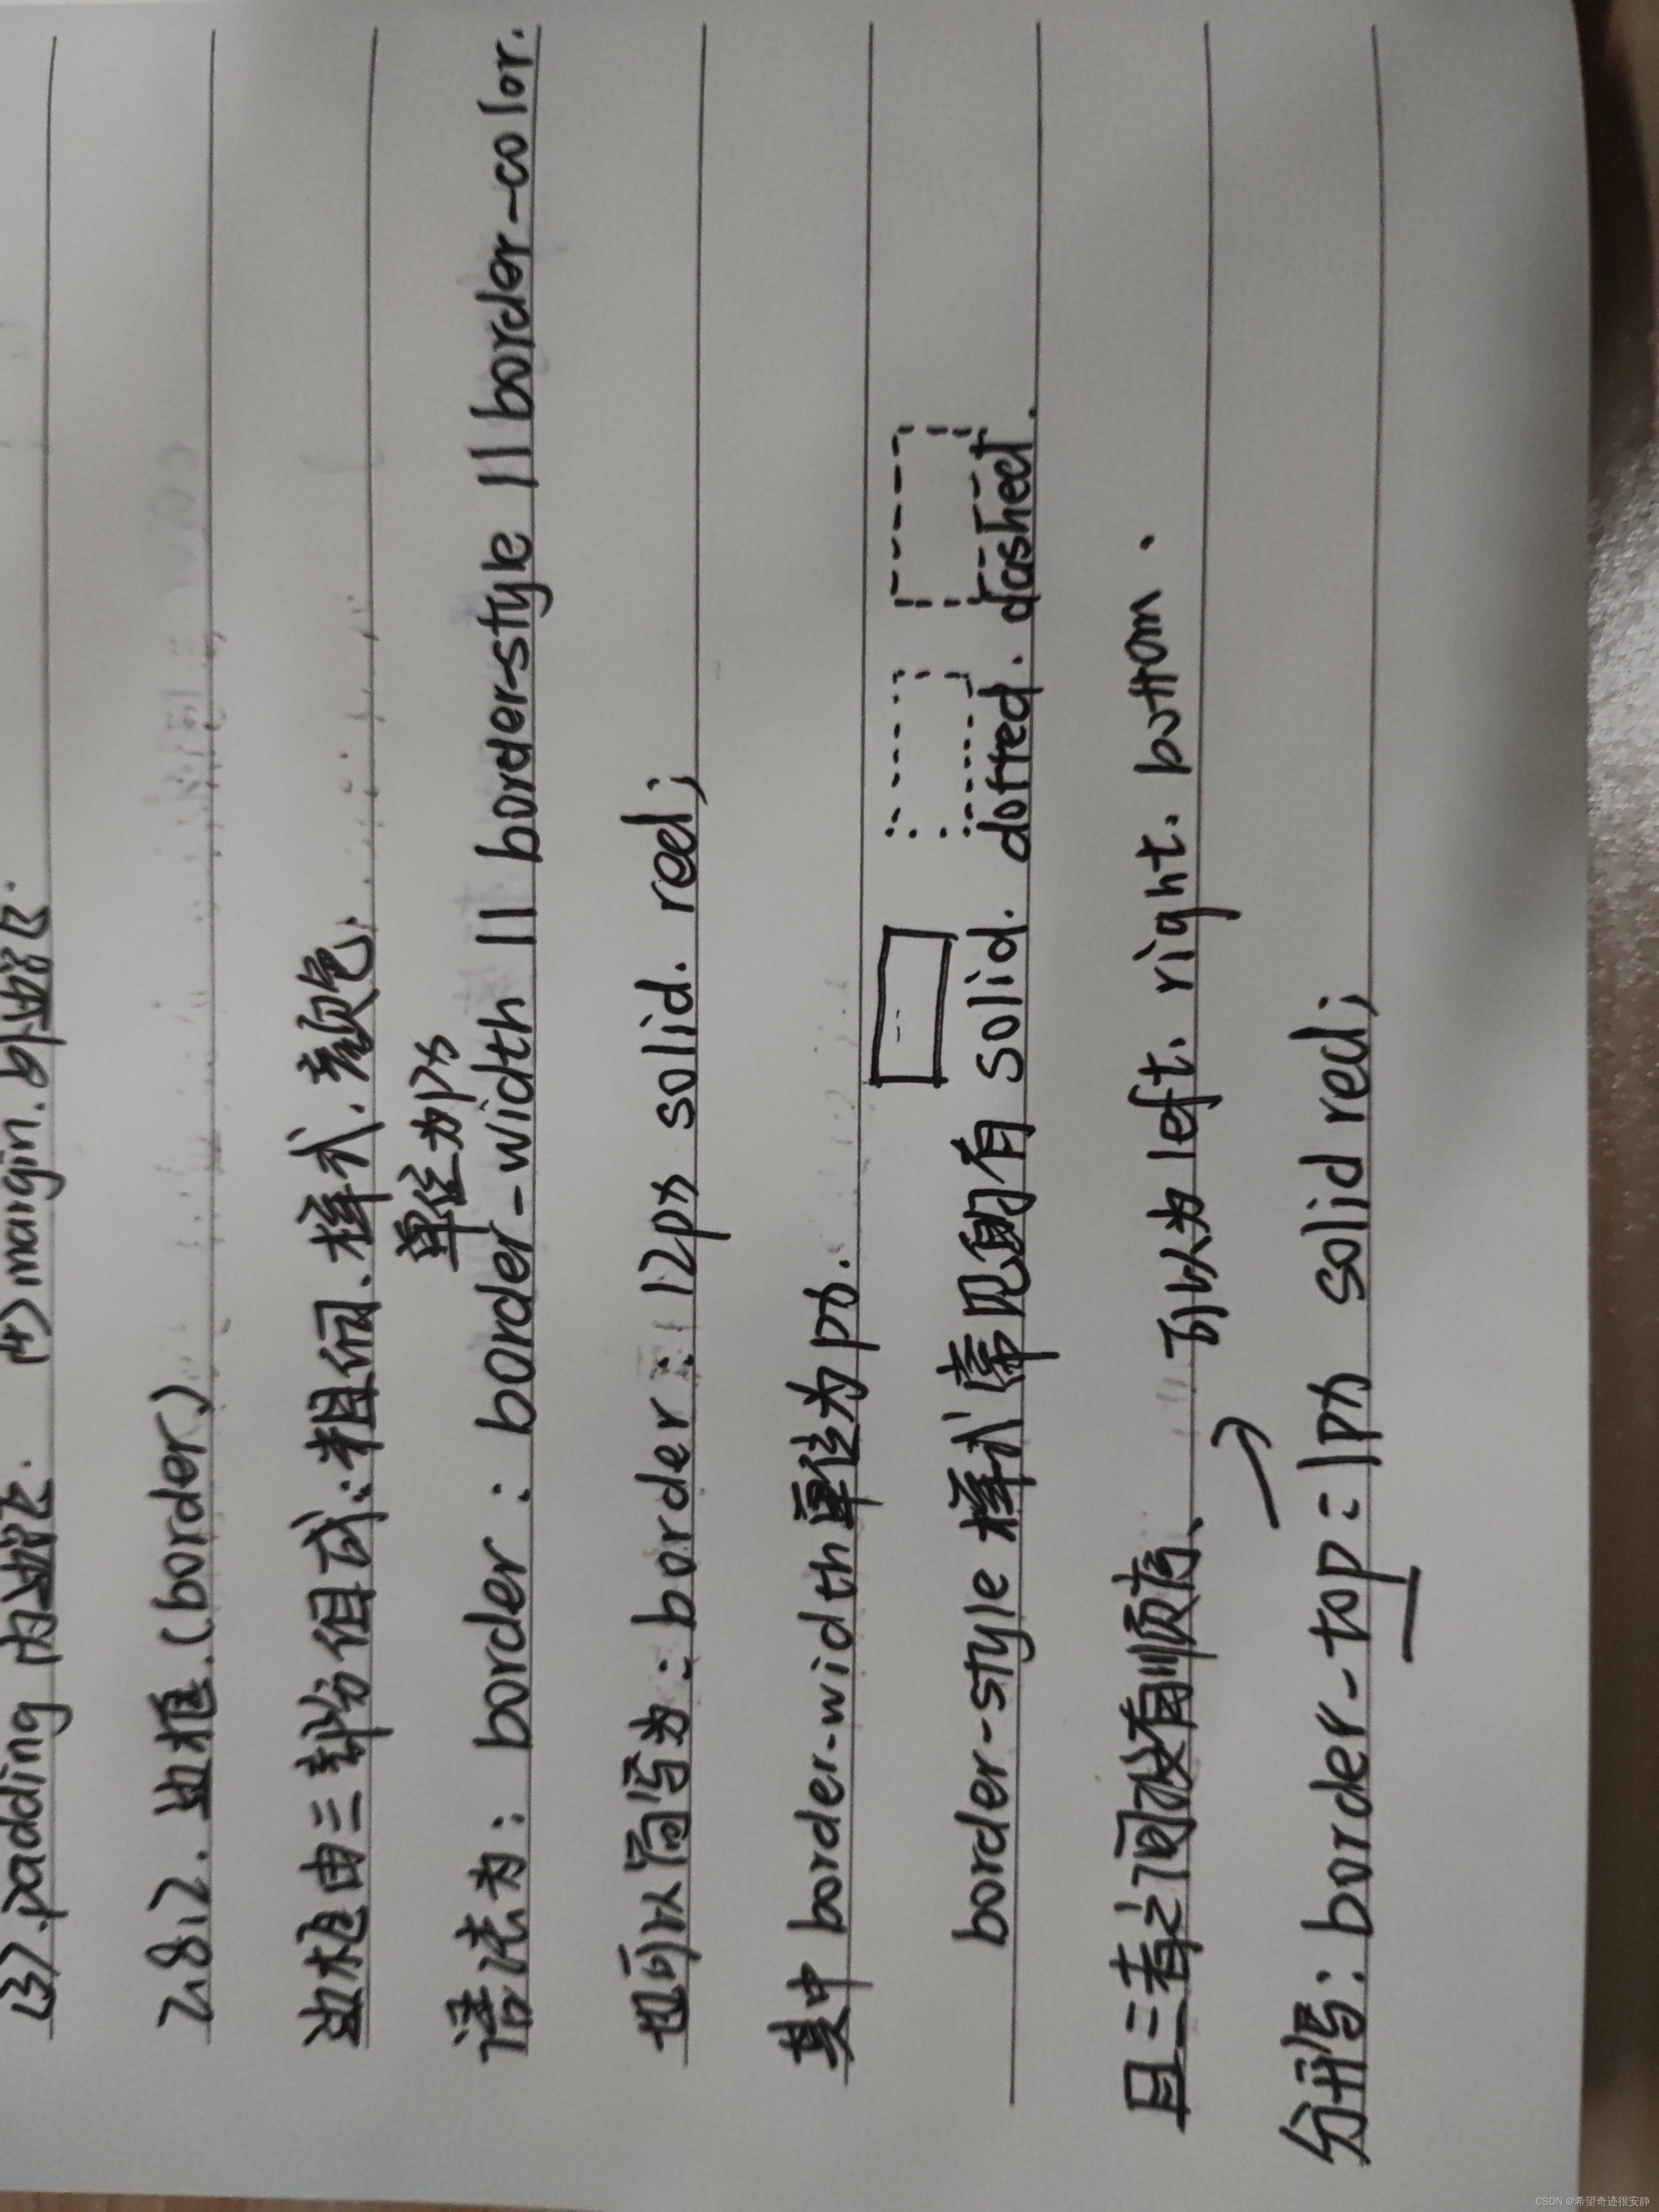 (3).padding 内边距. (4)margin.外边距.
2.8.2. 边框.(border)
边框由三部分组成:粗细、样式、颜色.
单位为px
语法为: border : border-width || border-style || border-color.
也可以简写为: border: 12px solid. red;
其中 border-width单位为px.
border-style 样式常见的有 solid. dotted. dashed.
且三者之间没有顺序、 可以为 left. right. buttom.
分开写: border-top: 1px solid red;
CSDN @希望奇迹很安静